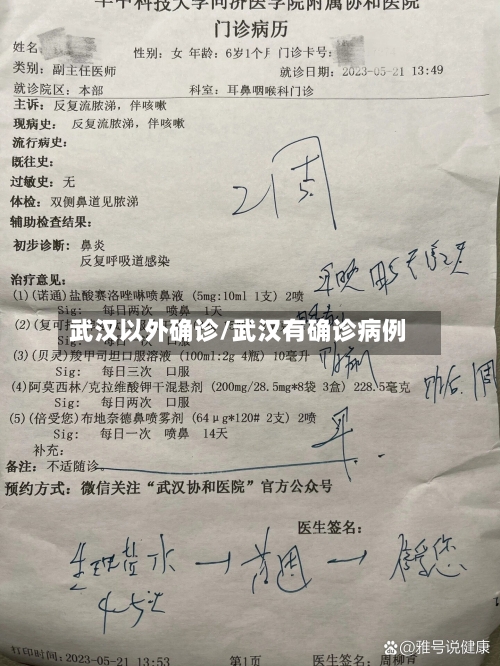 华中科技大学同济医学院附属协和医院
门诊病历
姓名:
性别: 女 年龄: 6岁1个月 门诊卡号:
类别: 副主任医师
就诊日期: 2023-05-21 13:49
就诊院区: 本部
科室: 耳鼻咽喉科门诊
主诉: 反复流脓涕，伴咳嗽
现病史: 反复流脓涕，伴咳嗽
流行病史:
既往史:
过敏史: 无
体检: 双侧鼻道见脓涕
辅助检查结果:
初步诊断: 鼻炎
反复呼吸道感染
治疗意见:
(1)(诺通)盐酸赛洛唑啉喷鼻液 (5mg:10ml 1支) 2喷
Sig: 每日两次 喷鼻 1天
(2)(复可
武汉以外确诊/武汉有确诊病例
(3)(贝灵)羧甲司坦口服溶液 (100ml:2g 4瓶) 10毫升
Sig: 每日三次 口服
(4)阿莫西林/克拉维酸钾干混悬剂 (200mg/28.5mg*8袋 3盒) 228.5毫克
Sig: 每日两次 口服
(5)(倍受您)布地奈德鼻喷雾剂 (64μg*120# 2支) 2喷
Sig: 每日一次 喷鼻 14天
补充:
备注: 不适随诊。
预约方式: 微信关注“武汉协和医院”官方公众号
医生签名:
生理盐水 →
打印时间: 2023-05-21 13:53
第1页
医生签名:
@雅号说健康